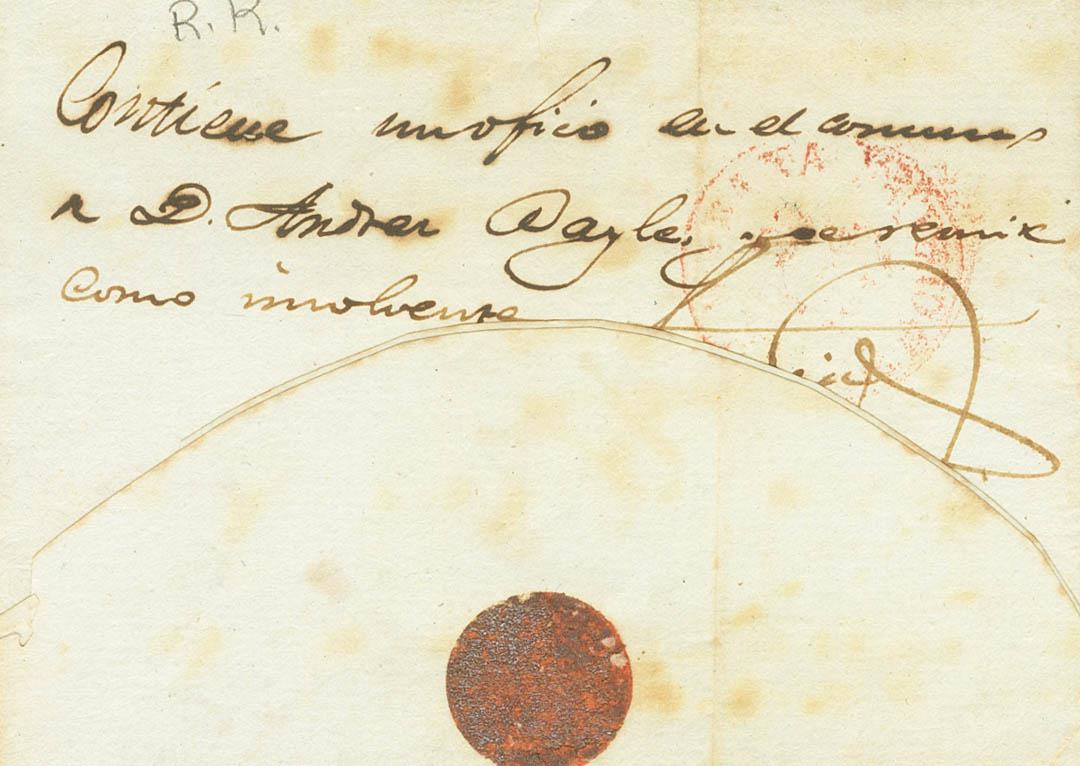 R. K.
Contiene un oficio en el
a D. Andres Bayle. se remite
como insolvente